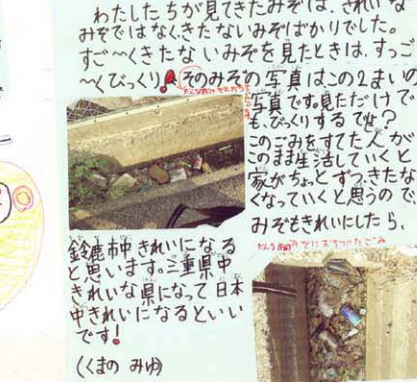 わたしたちが見てきたみぞは、きれいな
みぞではなくきたないみぞばかりでした。
すご〜くきたないみぞを見たときは、すっご
〜くびっくり！そのみぞの写真はこの2まいの
写真です。見ただけで
も、びっくりするでしょ？
このごみをすてた人が
このまま生活していくと
家がちょっとずつ、きたな
くなっていくと思うので、
みぞもきれいにしたら、
鈴鹿市中きれいになる
と思います。三重県中
きれいな県になって日本
中きれいになるといい
です！
（くまの みゆ）